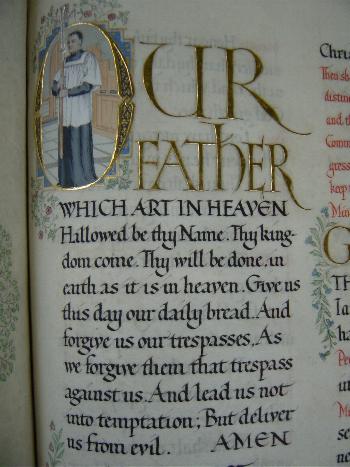 OUR
FATHER
WHICH ART IN HEAVEN
Hallowed be thy Name. Thy king-
dom come. Thy will be done, in
earth as it is in heaven. Give us
this day our daily bread. And
forgive us our trespasses, As
we forgive them that trespass
against us. And lead us not
into temptation; But deliver
us from evil. AMEN
Chri
Then sh
distinc
and th
Comm
gress
keep